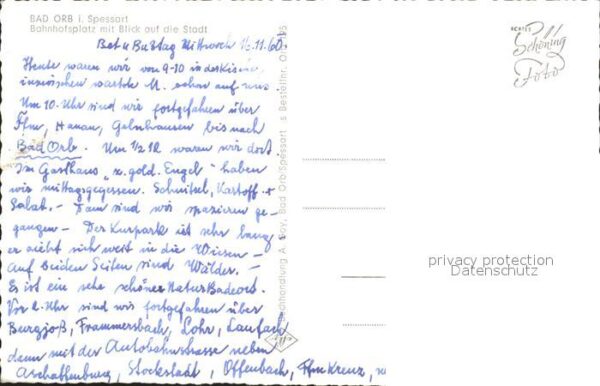 BAD ORB i. Spessart
Bahnhofsplatz mit Blick auf die Stadt
Bet u Bußtag Mittwoch 16.11.60
Heute waren wir von 9-10 in der Kirche,
inzwischen wartete M. schon auf uns.
Um 10 Uhr sind wir fortgefahren über
Ffm, Hanau, Gelnhausen bis nach
Bad Orb. Um 1/2 12 waren wir dort.
Im Gasthaus "z. gold. Engel" haben
wir mittagsgegessen. Schnitzel, Kartoff. +
Salat. - Dann sind wir spazieren ge-
gangen - Der Kurpark ist sehr lang
er zieht sich weit in die Wiesen -
auf beiden Seiten sind Wälder. -
Es ist ein sehr schöner Natur Badeort.
Vor 2 Uhr sind wir fortgefahren über
Burgjoß, Frammersbach, Lohr, Laufach
dann mit der Autobahnstrasse neben
Aschaffenburg, Stockstadt, Offenbach, Ffm Kreuz,
Buchhandlung A. Bad Orb/Spessart Bestellnr. O
ECHTES
Schöning
Foto
privacy protection
Datenschutz